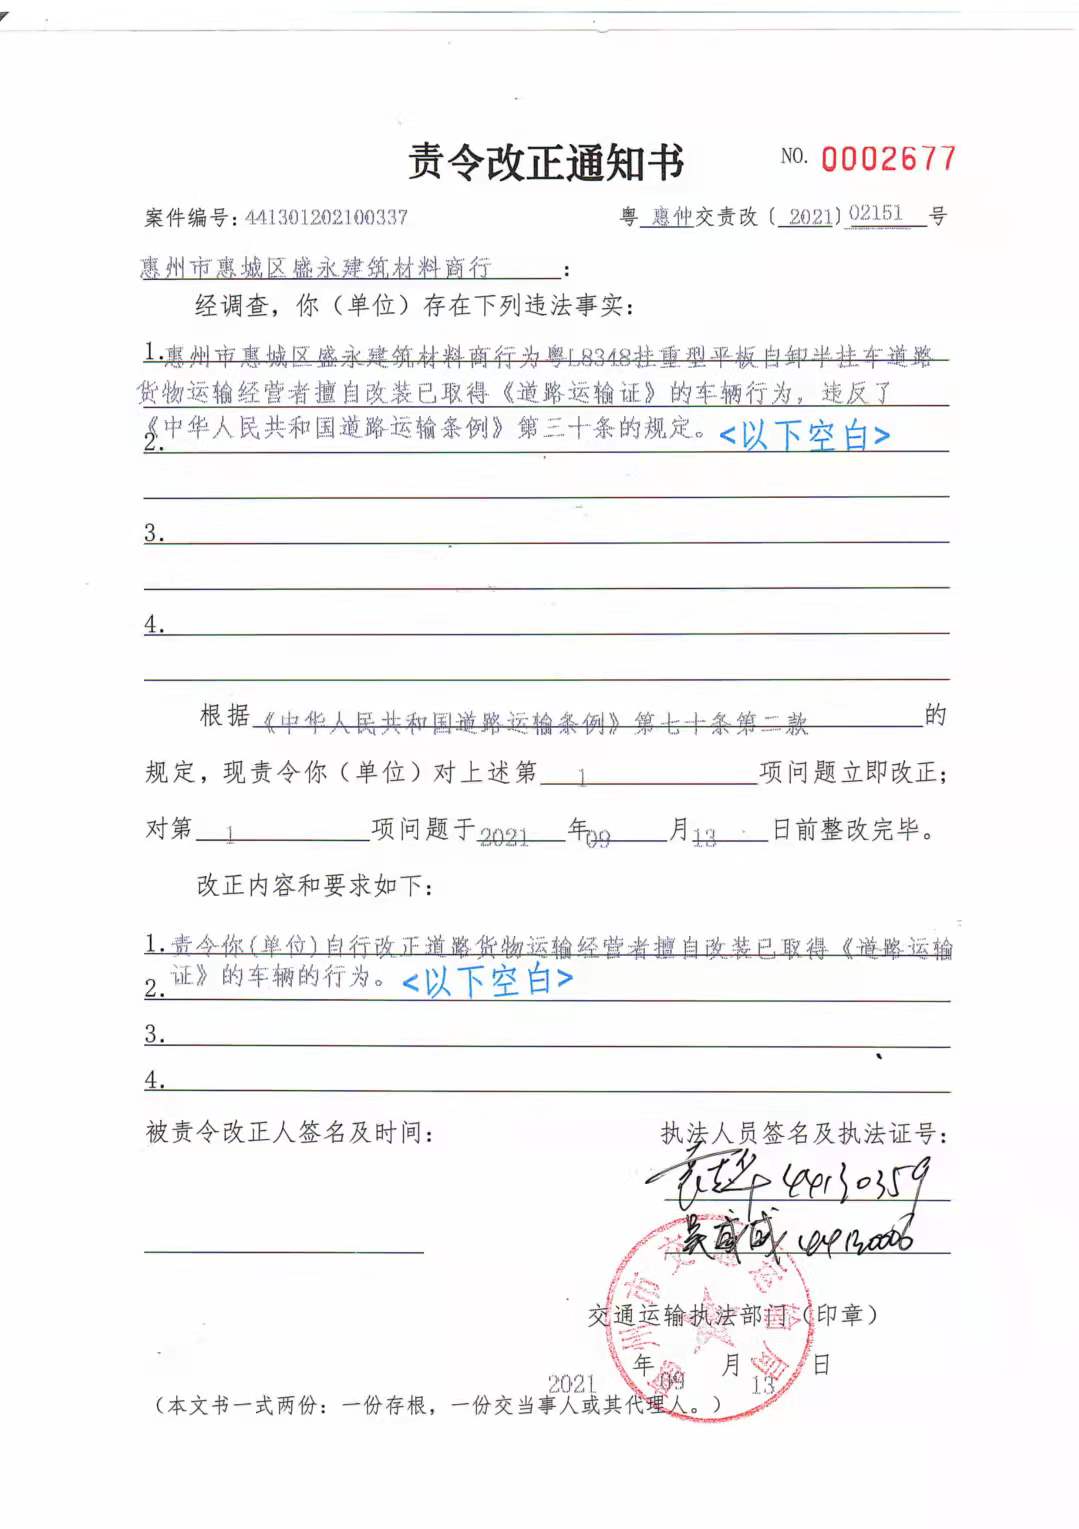 责令改正通知书 NO. 0002677
案件编号：441301202100337 粤 惠仲交责改〔 2021〕02151 号
惠州市惠城区盛永建筑材料商行：
经调查，你（单位）存在下列违法事实：
1.惠州市惠城区盛永建筑材料商行为粤L8348挂重型平板自卸半挂车道路
货物运输经营者擅自改装已取得《道路运输证》的车辆行为，违反了
2.《中华人民共和国道路运输条例》第三十条的规定。<以下空白>
3.
4.
根据《中华人民共和国道路运输条例》第七十条第二款的
规定，现责令你（单位）对上述第 1 项问题立即改正；
对第 1 项问题于2021年09月13日前整改完毕。
改正内容和要求如下：
1.责令你(单位)自行改正道路货物运输经营者擅自改装已取得《道路运输
2.证》的车辆的行为。<以下空白>
3.
4.
被责令改正人签名及时间： 执法人员签名及执法证号：
袁超华 44130359
44130006
惠州市交通运输局
交通运输执法部门（印章）
2021年09月13日
（本文书一式两份：一份存根，一份交当事人或其代理人。）